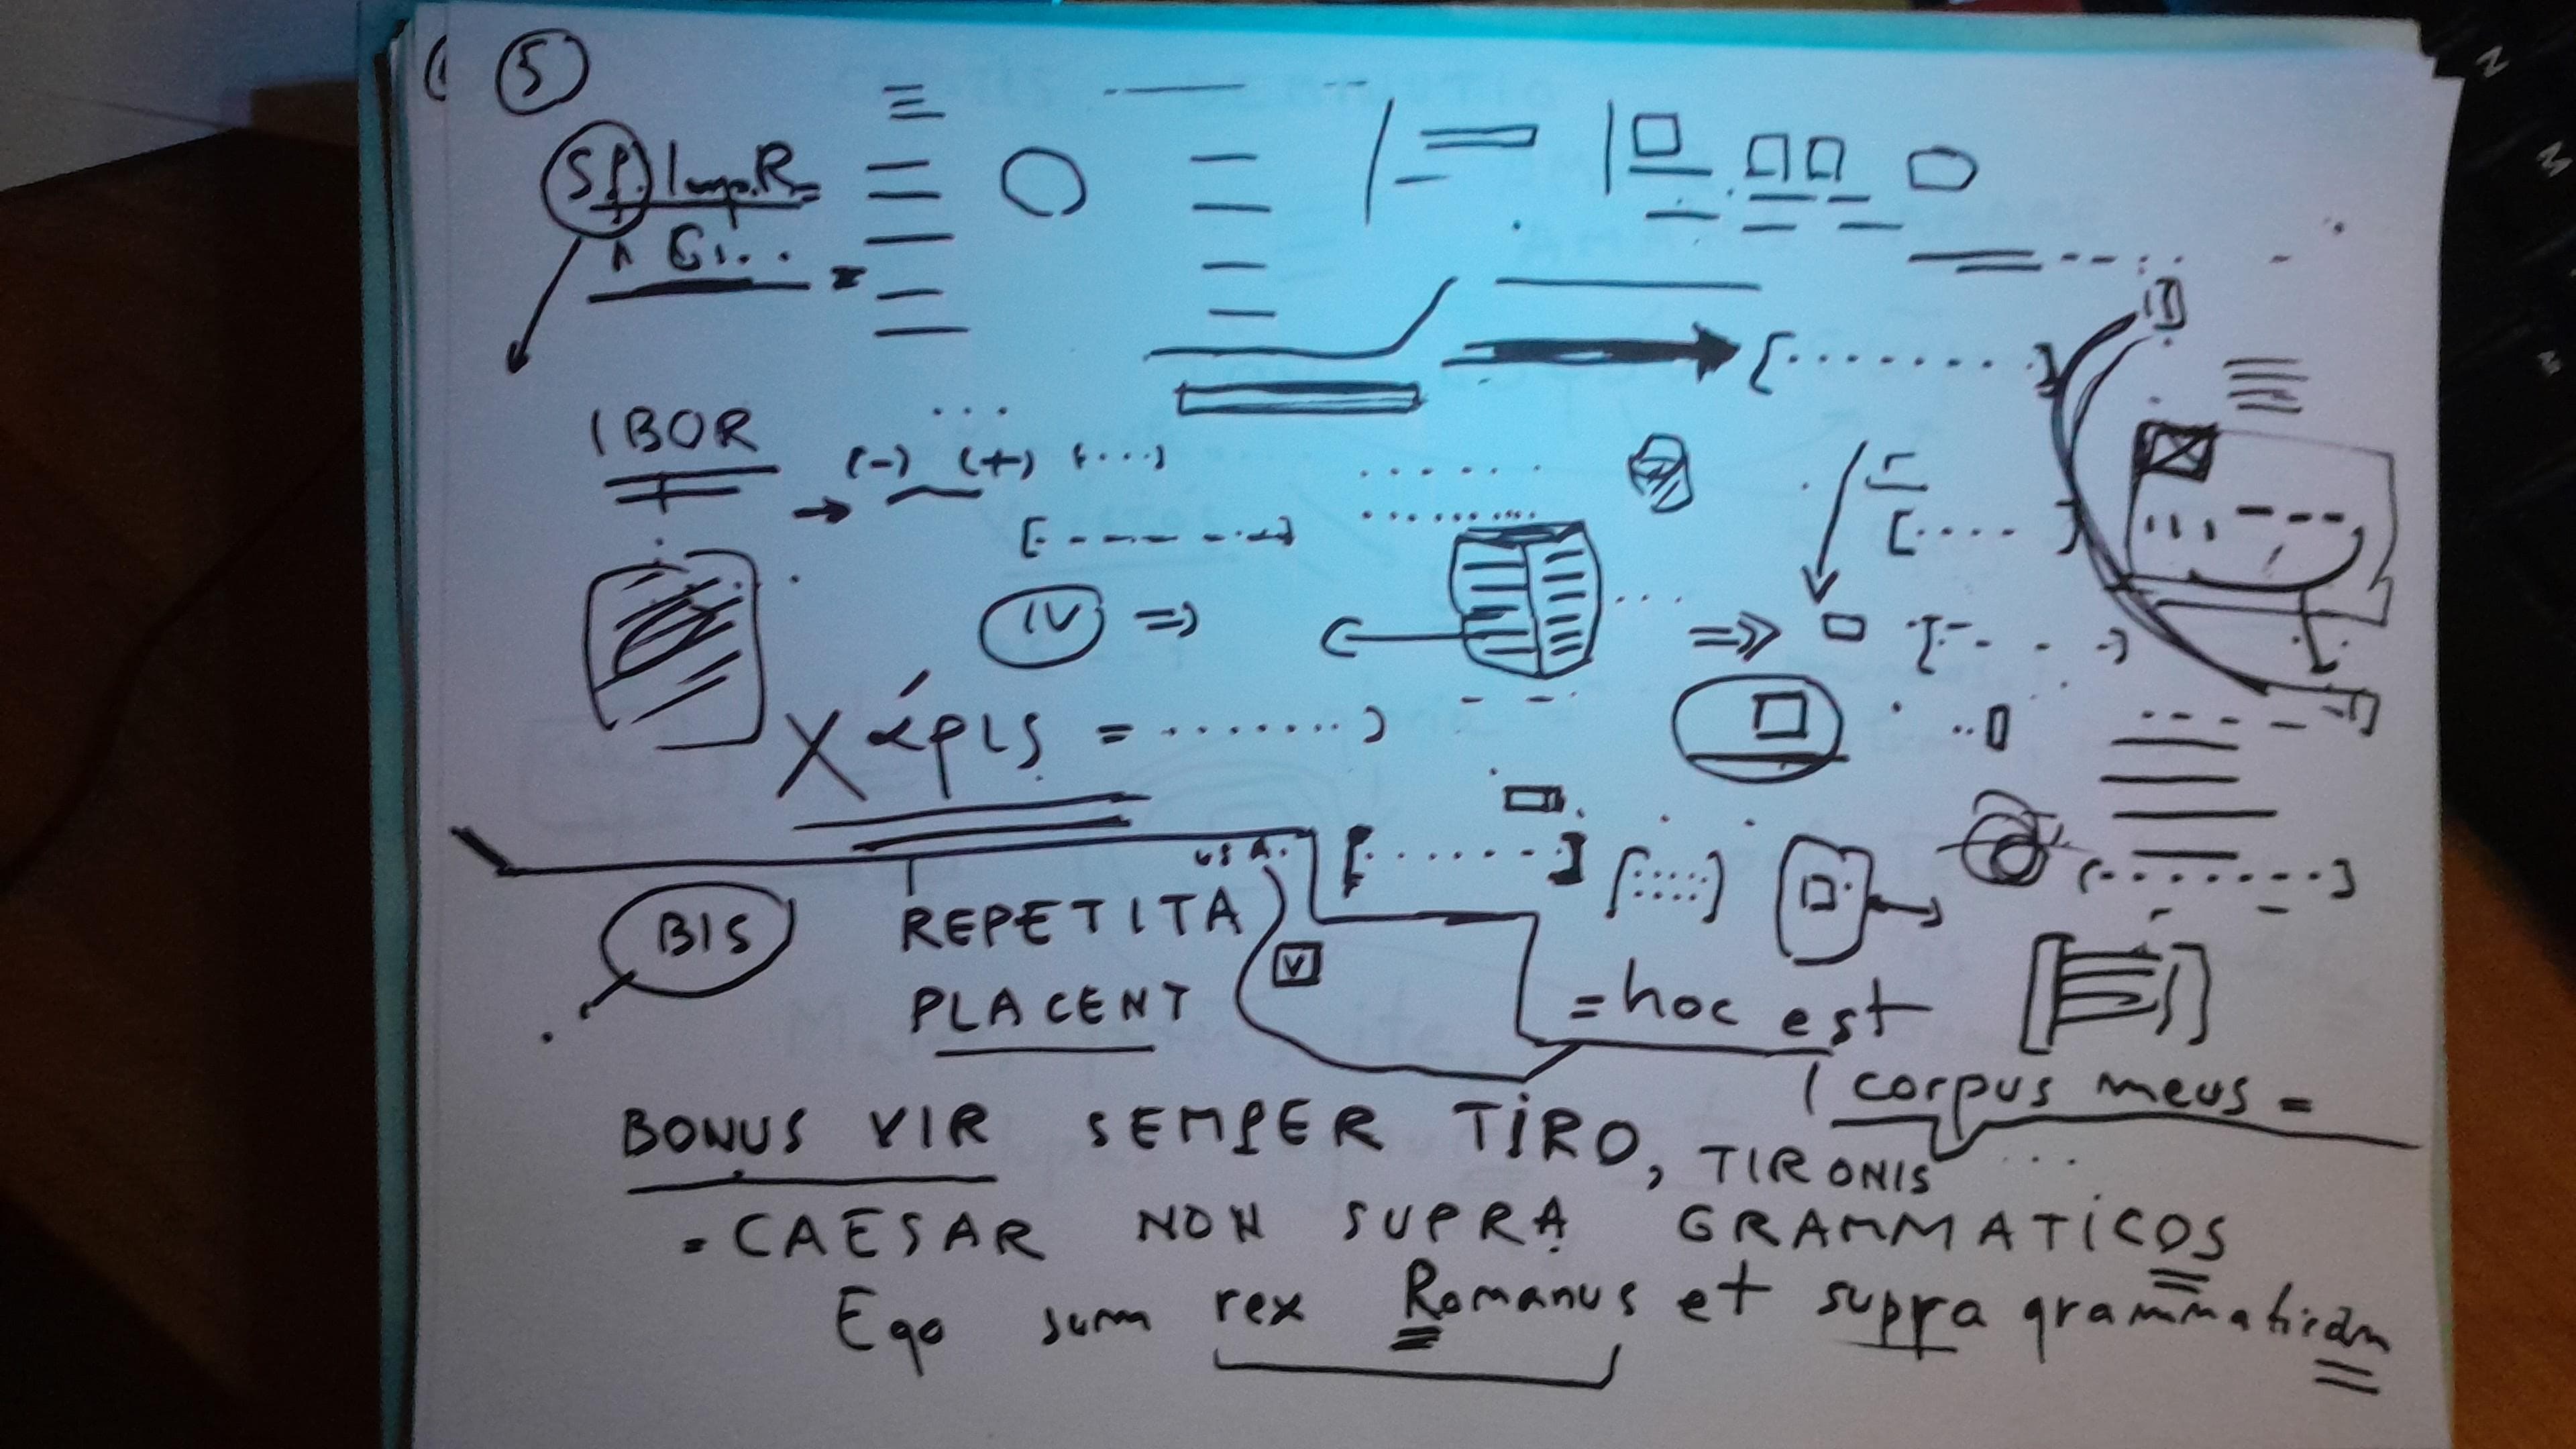 5
SP. Imp. R
IBOR
(-) (+) (...)
IV ⇒
Χάρις =
BIS REPETITA
V
PLACENT
= hoc est
corpus meus =
BONUS VIR SEMPER TIRO, TIRONIS ...
= CAESAR NON SUPRA GRAMMATICOS
Ego sum rex Romanus et supra grammaticam